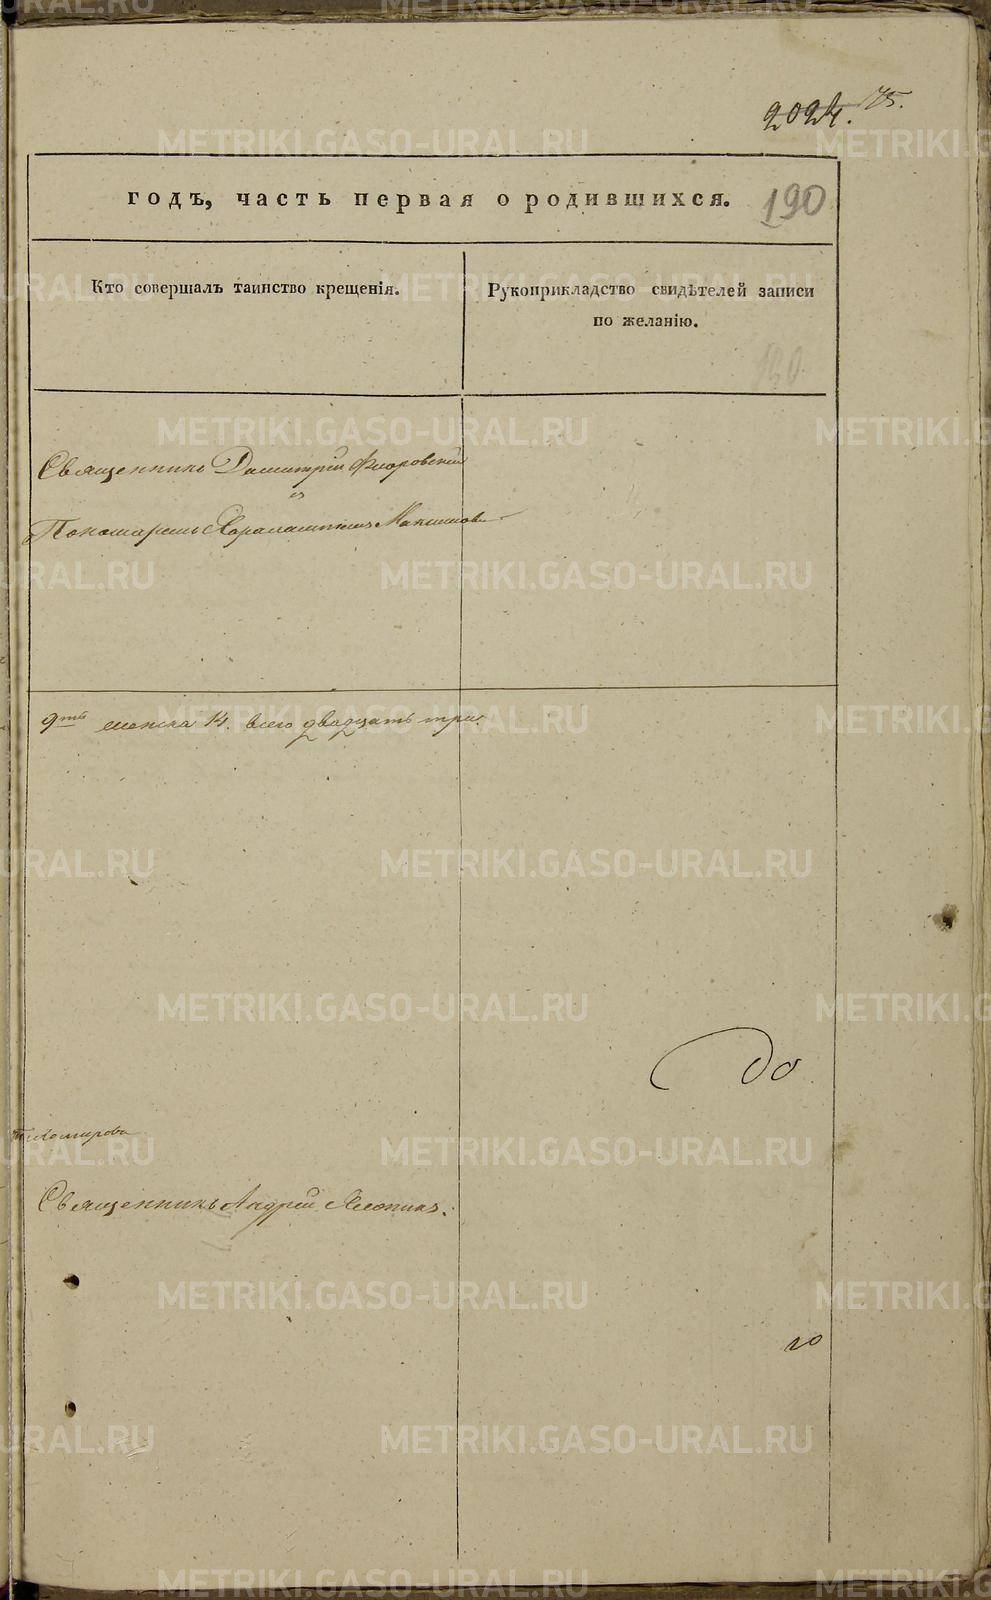 2024. 175.
годъ, часть первая о родившихся. 190
Кто совершалъ таинство крещенія.
Рукоприкладство свидѣтелей записи
по желанію.
190.
Священникъ Димитрій Флоровскій
и
Пономарь Харалампій Максимовъ
9ть женска 14. всего двадцать три.
до
Тихомировъ
Священникъ Андрей
го
METRIKI.GASO-URAL.RU